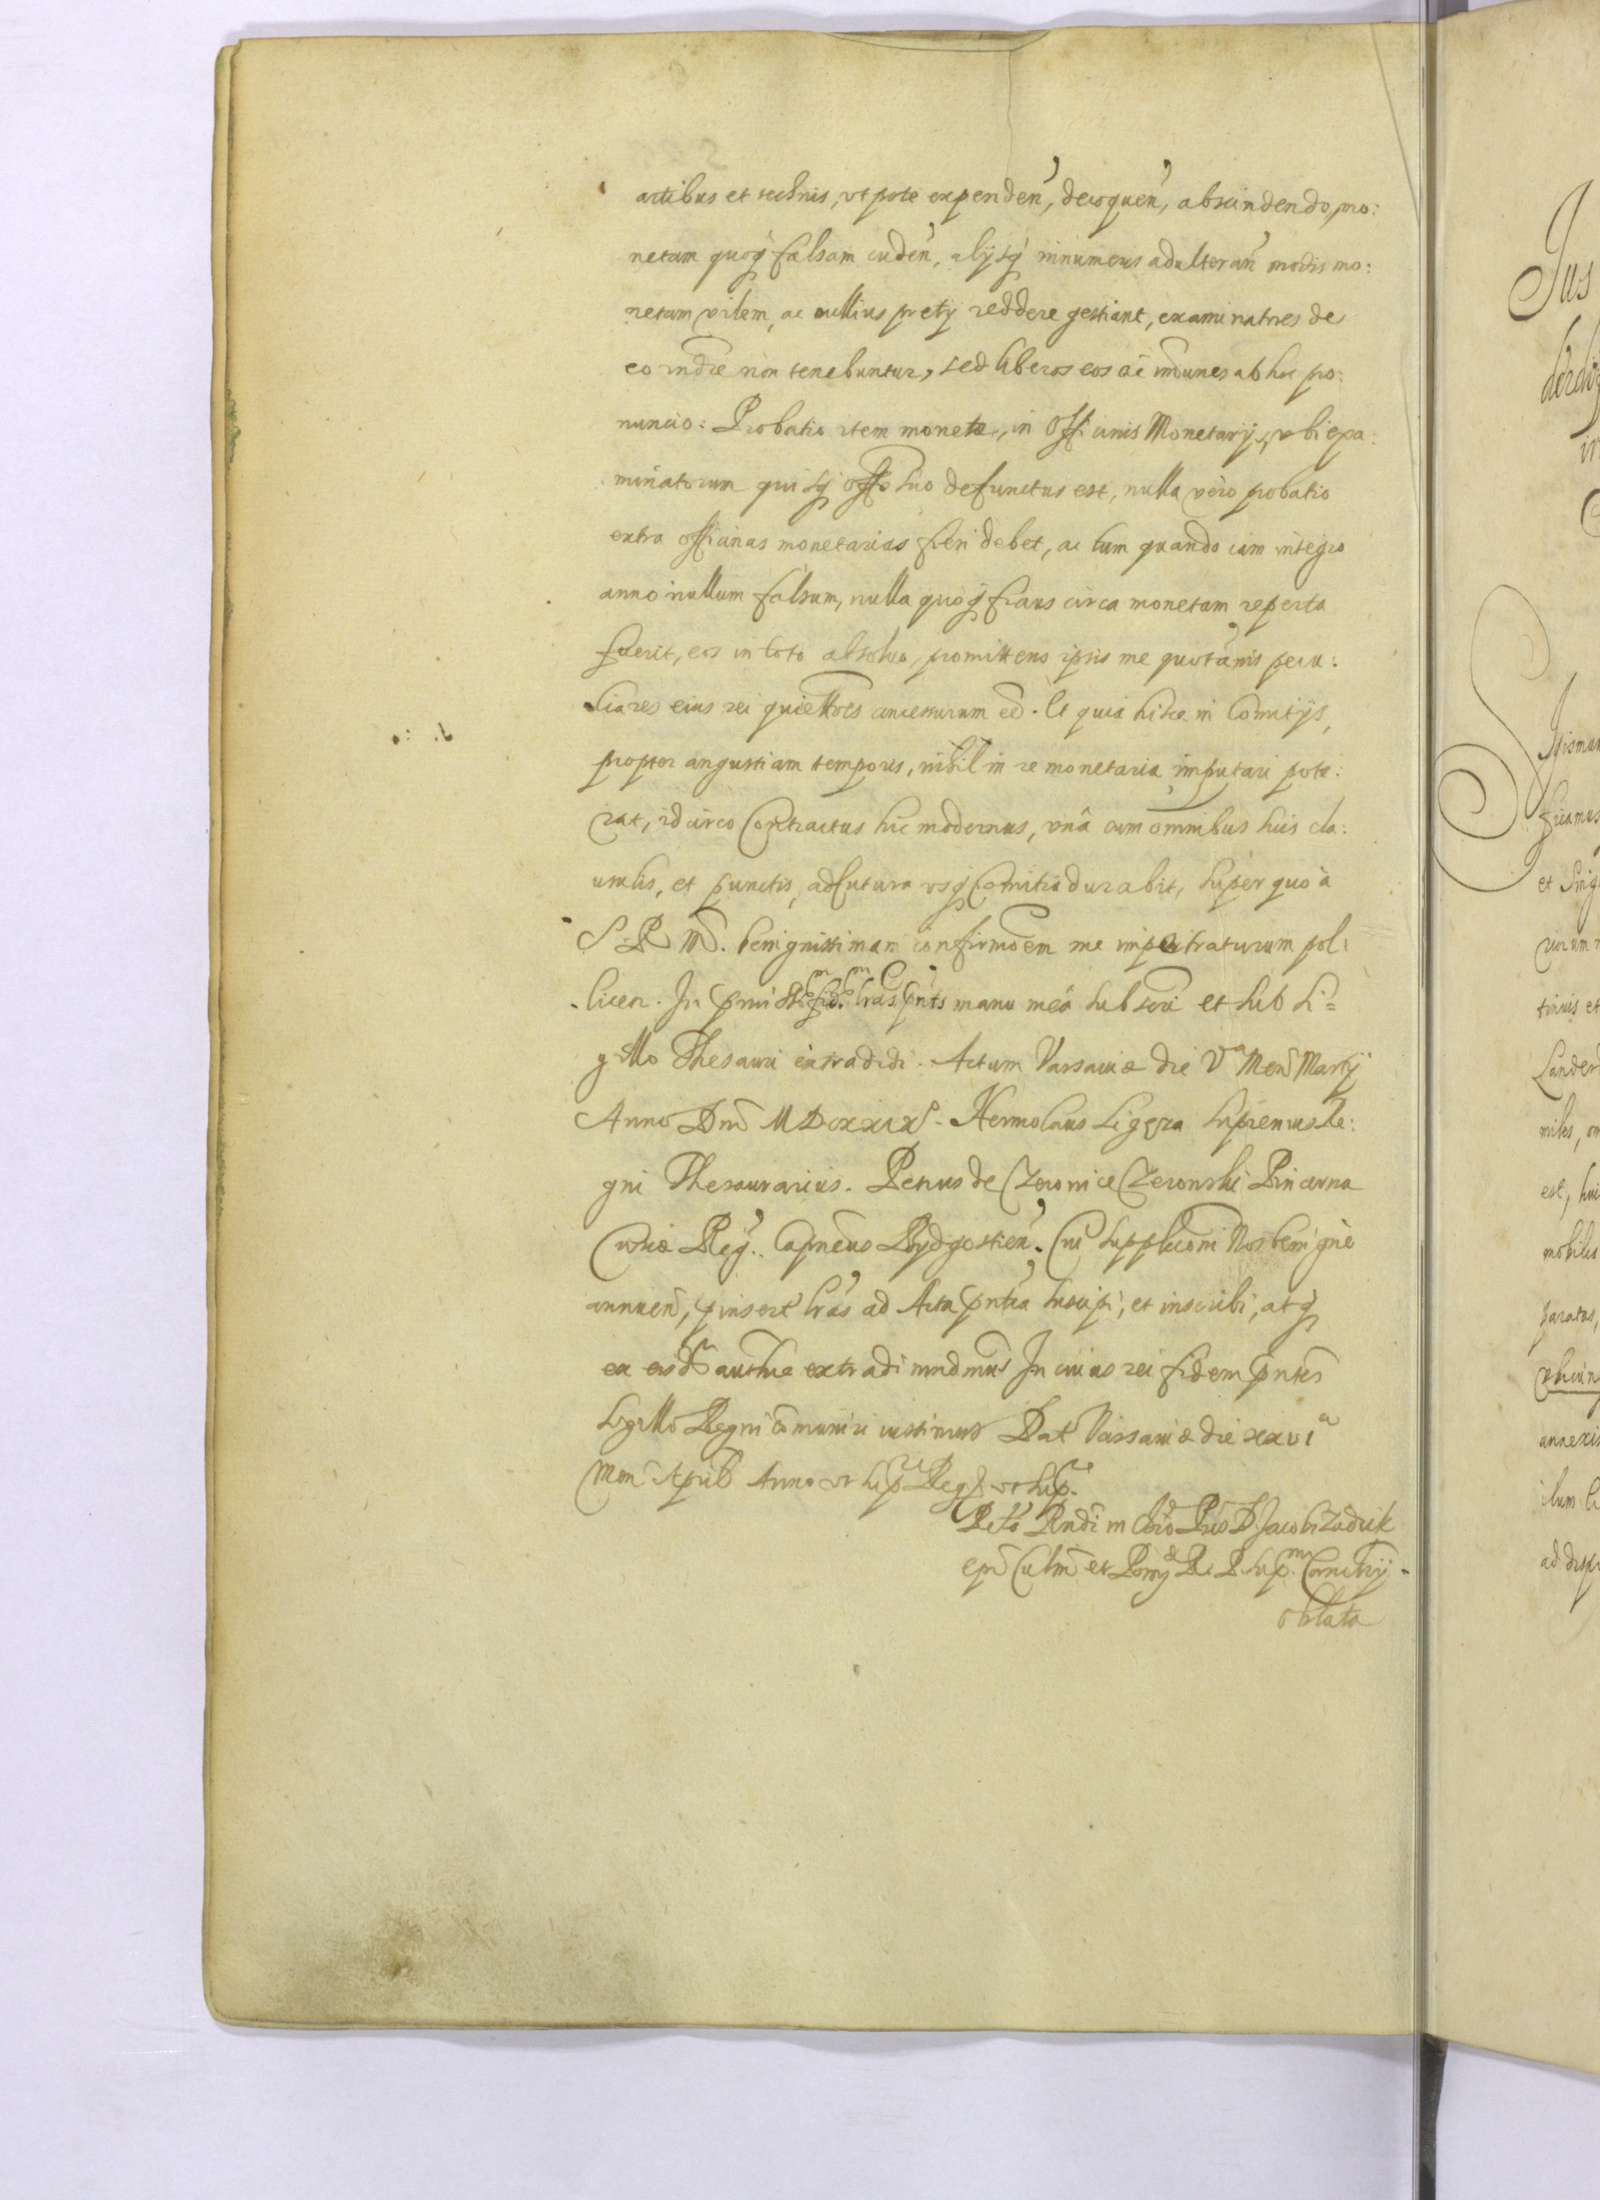 artibus et technis, vt pote expenden, decoquen, abscindendo, mo:
netam quoq falsam cuden, alijsq innumeris adulteran modis mo:
netam vilem, ac nullius pretij reddere gestiant, examinatores de
eo non tenebuntur, sed liberos eos ac im̄unes ab hoc pro:
nuncio: Probatio item monetæ, in Officinis Monetarijs, vbi exa:
minatorum quisq offo suo defunctus est, nulla vero probatio
extra officinas monetarias fieri debet, ac tum quando iam integro
anno nullum falsum, nulla quoq fraus circa monetam reperta
fuerit, eos in toto absoluo, promittens ipsis me quotannis pecu:
liares eius rei concessurum . Et quia hisce in Comitijs,
propter angustiam temporis, nihil in re monetaria imputari pote:
rat, idcirco Contractus hic modernus, vnâ cum omnibus suis cla:
usulis, et punctis, ad futura vsq Comitia durabit, super quo à
S R M. benignissimam confirmōem me impetraturum pol:
licer. In manu meâ subscri et sub si=
gillo Thesauri extradidi. Actum Varsauiæ die Vᵃ Men Martij
Anno Dni MDCXXIX. Hermolaus Ligęza Supremus Re:
gni Thesaurarius. Petrus de Czeronski Pincerna
Curiæ Reg. Capneus Bydgostien. Cui supplicōni Nos benignè
annuen, pinsert lras ad Acta pntia suscipi, et inscribi, atq
ex eisd authce extradi mndmus In cuius rei fidem pntes
Sigillo Regni com̄uniri iussimus Dat Varsauiæ die XXVIᵃ
Men Aprilis Anno vt sup Reg vt sup.
D. Jacobi Zadzik
epi Culm et Pom
oblata
Jus